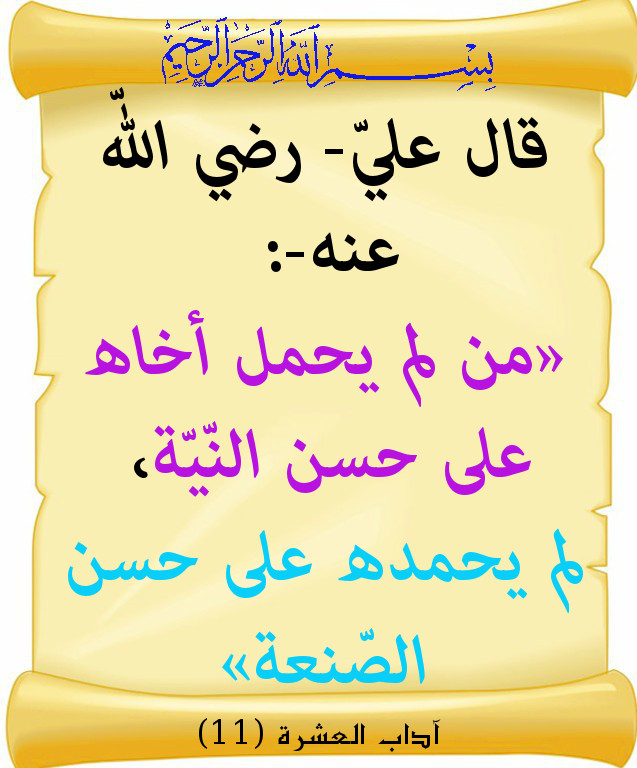 بسم الله الرحمن الرحيم
قال عليّ- رضي اللّه
عنه-:
«من لم يحمل أخاه
على حسن النّيّة،
لم يحمده على حسن
الصّنعة»
آداب العشرة (11)